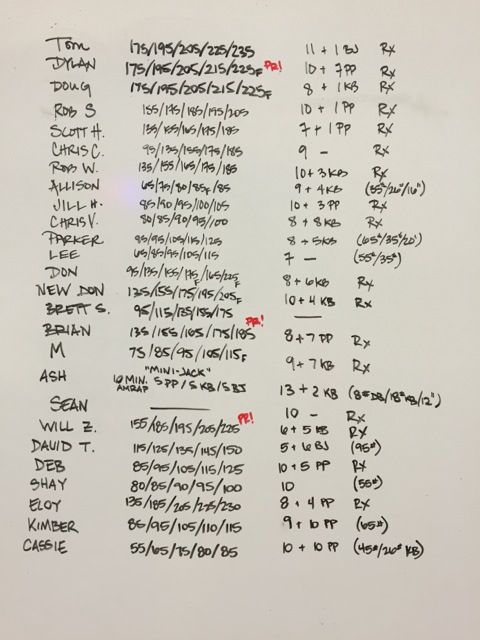 Tom 175/195/205/225/235 11 + 1 BJ Rx
DYLAN 175/195/205/215/225F PR! 10 + 7 PP Rx
DOUG 175/195/205/215/225F 8 + 1 KB Rx
ROB S 155/175/185/195/205 10 + 1 PP Rx
SCOTT H. 135/155/165/175/185 7 + 1 PP Rx
CHRIS C. 95/135/155/175/185 9 - Rx
ROB W. 135/155/165/175/185 10 + 3 KB Rx
ALLISON 65/75/80/85F/85 9 + 4 KB (55#/26#/16")
JILL H. 85/90/95/100/105 10 + 3 PP Rx
CHRIS V. 80/85/90/95/100 8 + 8 KB Rx
PARKER 85/95/105/115/125 8 + 5 KB (65#/35#/20")
LEE 65/85/95/105/115 7 - (55#/35#)
DON 95/135/155/175F/165/225F 8 + 6 KB Rx
NEW DON 135/155/175/195/205F 10 + 4 KB Rx
BRETT S. 95/115/135/155/175
BRIAN 135/155/165/175/185 PR! 8 + 7 PP Rx
M 75/85/95/105/115F 9 + 7 KB Rx
ASH "MINI-JACK"
10 MIN. AMRAP 5 PP/5 KB/5 BJ 13 + 2 KB (8# DB/18# KB/12")
SEAN 10 - Rx
WILL Z. 155/185/195/205/225 PR! 6 + 5 KB Rx
DAVID T. 115/125/135/145/150 5 + 6 BJ (95#)
DEB 85/95/105/115/125 10 + 5 PP Rx
SHAY 80/85/90/95/100 10 (55#)
ELOY 135/185/205/225/230 8 + 4 PP Rx
KIMBER 85/95/105/110/115 9 + 10 PP (65#)
CASSIE 55/65/75/80/85 10 + 10 PP (45#/26# KB)